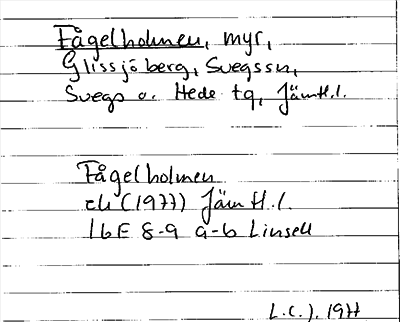 Fågelholmen, myr,
Glissjöberg, Svegssn,
Svegs o. Hede tg, Jämtl.l.
Fågelholmen
ek (1977) Jämtl.l.
16E 8-9 a-b Linsell
L.C.J. 1977